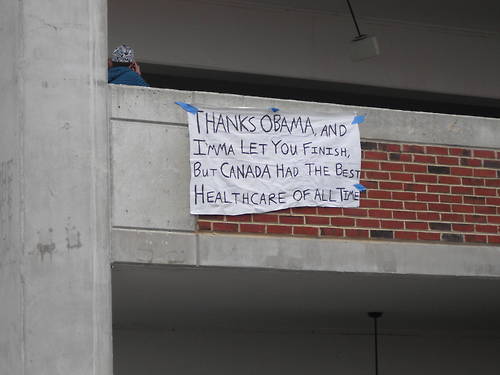 THANKS OBAMA, AND
IMMA LET YOU FINISH,
BUT CANADA HAD THE BEST
HEALTHCARE OF ALL TIME